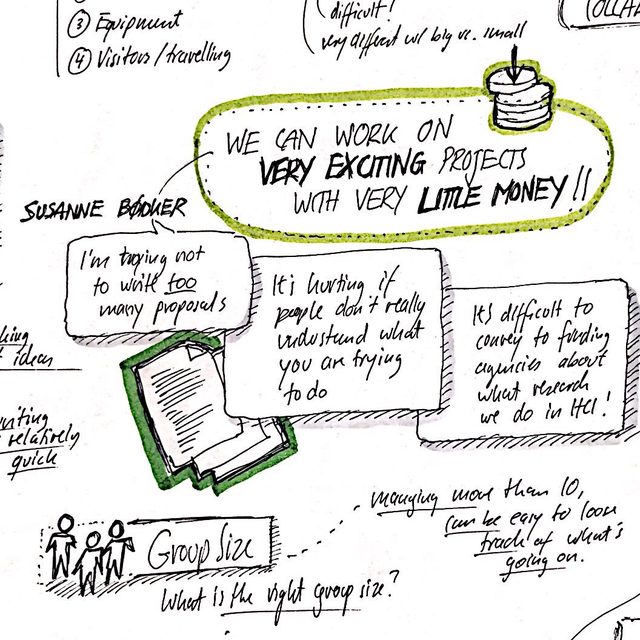 ③ Equipment
④ Visitors / travelling
difficult!
very different w/ big vs. small
WE CAN WORK ON
VERY EXCITING PROJECTS
WITH VERY LITTLE MONEY!!
SUSANNE BØDKER
I'm trying not
to write too
many proposals
It's hurting if
people don't really
understand what
you are trying
to do
It's difficult to
convey to funding
agencies about
what research
we do in HCI!
ideas
writing
relatively
quick
Group Size
What is the right group size?
managing more than 10,
can be easy to loose
track of what's
going on.